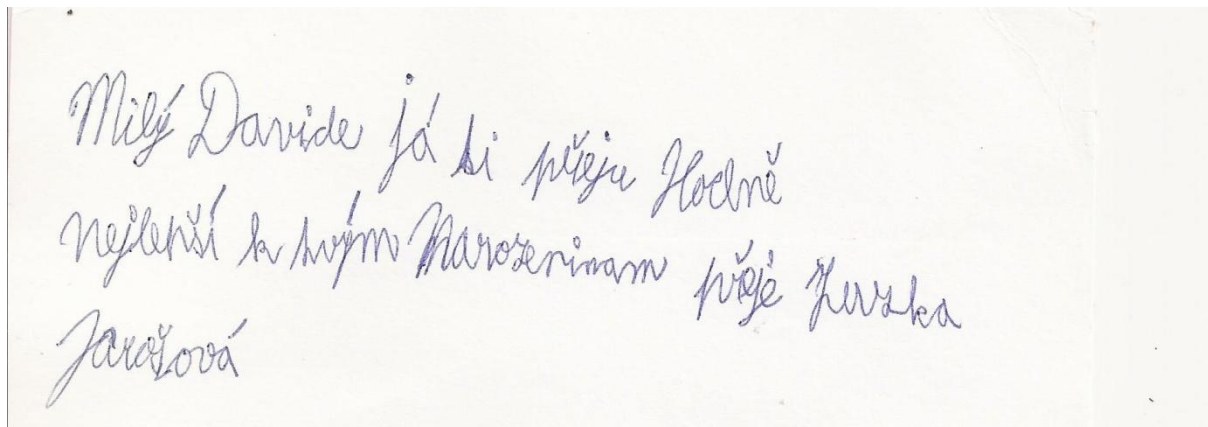 Milý Davide já ti přeju Hodně
nejlepší k tvým Narozeninam přeje
Jarošová